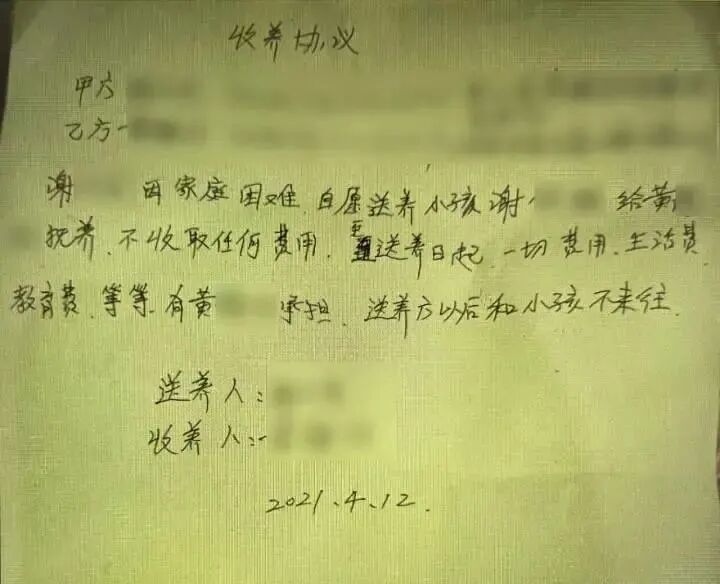 收养协议
甲方
乙方
谢 因家庭困难,自愿送养小孩谢 给黄
抚养,不收取任何费用,更送养日起,一切费用、生活费
教育费、等等、有黄 承担、送养方以后和小孩不来往.
送养人:
收养人:
2021、4、12.